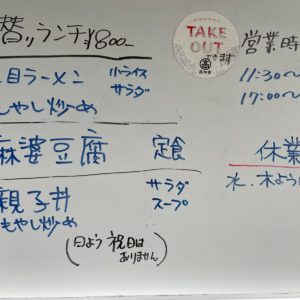 替りランチ¥800-
目ラーメン 小ライス
サラダ
もやし炒め
麻婆豆腐 定食
親子丼 サラダ
スープ
もやし炒め
(日よう祝日は
ありません)
TAKE
OUT
できます
営業時
11:30〜
17:00〜
休業
水、木よう